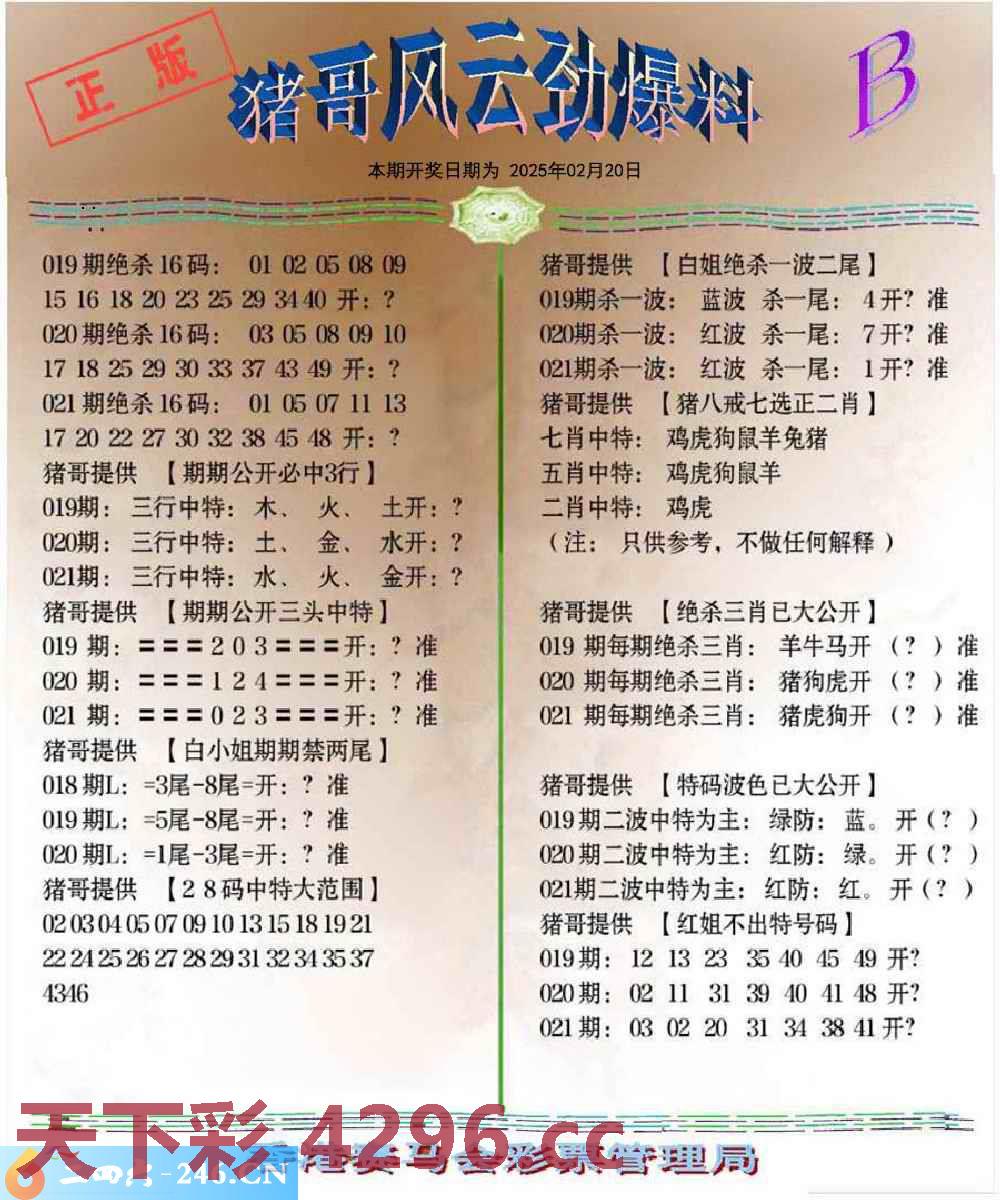 正版
猪哥风云劲爆料
B
本期开奖日期为 2025年02月20日
019期绝杀16码： 01 02 05 08 09
15 16 18 20 23 25 29 34 40 开：?
020期绝杀16码： 03 05 08 09 10
17 18 25 29 30 33 37 43 49 开：?
021期绝杀16码： 01 05 07 11 13
17 20 22 27 30 32 38 45 48 开：?
猪哥提供 【期期公开必中3行】
019期： 三行中特：木、 火、 土开：?
020期： 三行中特：土、 金、 水开：?
021期： 三行中特：水、 火、 金开：?
猪哥提供 【期期公开三头中特】
019 期：===2 0 3===开：? 准
020 期：===1 2 4===开：? 准
021 期：===0 2 3===开：? 准
猪哥提供 【白小姐期期禁两尾】
018期L：=3尾-8尾=开：? 准
019期L：=5尾-8尾=开：? 准
020期L：=1尾-3尾=开：? 准
猪哥提供 【28码中特大范围】
02 03 04 05 07 09 10 13 15 18 19 21
22 24 25 26 27 28 29 31 32 34 35 37
4346
猪哥提供 【白姐绝杀一波二尾】
019期杀一波： 蓝波 杀一尾： 4开? 准
020期杀一波： 红波 杀一尾： 7开? 准
021期杀一波： 红波 杀一尾： 1开? 准
猪哥提供 【猪八戒七选正二肖】
七肖中特： 鸡虎狗鼠羊兔猪
五肖中特： 鸡虎狗鼠羊
二肖中特： 鸡虎
（注： 只供参考，不做任何解释）
猪哥提供 【绝杀三肖已大公开】
019 期每期绝杀三肖： 羊牛马开 （? ）准
020 期每期绝杀三肖： 猪狗虎开 （? ）准
021 期每期绝杀三肖： 猪虎狗开 （? ）准
猪哥提供 【特码波色已大公开】
019期二波中特为主：绿防：蓝。开（? ）
020期二波中特为主：红防：绿。开（? ）
021期二波中特为主：红防：红。开（? ）
猪哥提供 【红姐不出特号码】
019期：12 13 23 35 40 45 49 开?
020期：02 11 31 39 40 41 48 开?
021期：03 02 20 31 34 38 41 开?
天下彩.4296.cc
香港赛马会彩票管理局
246.CN